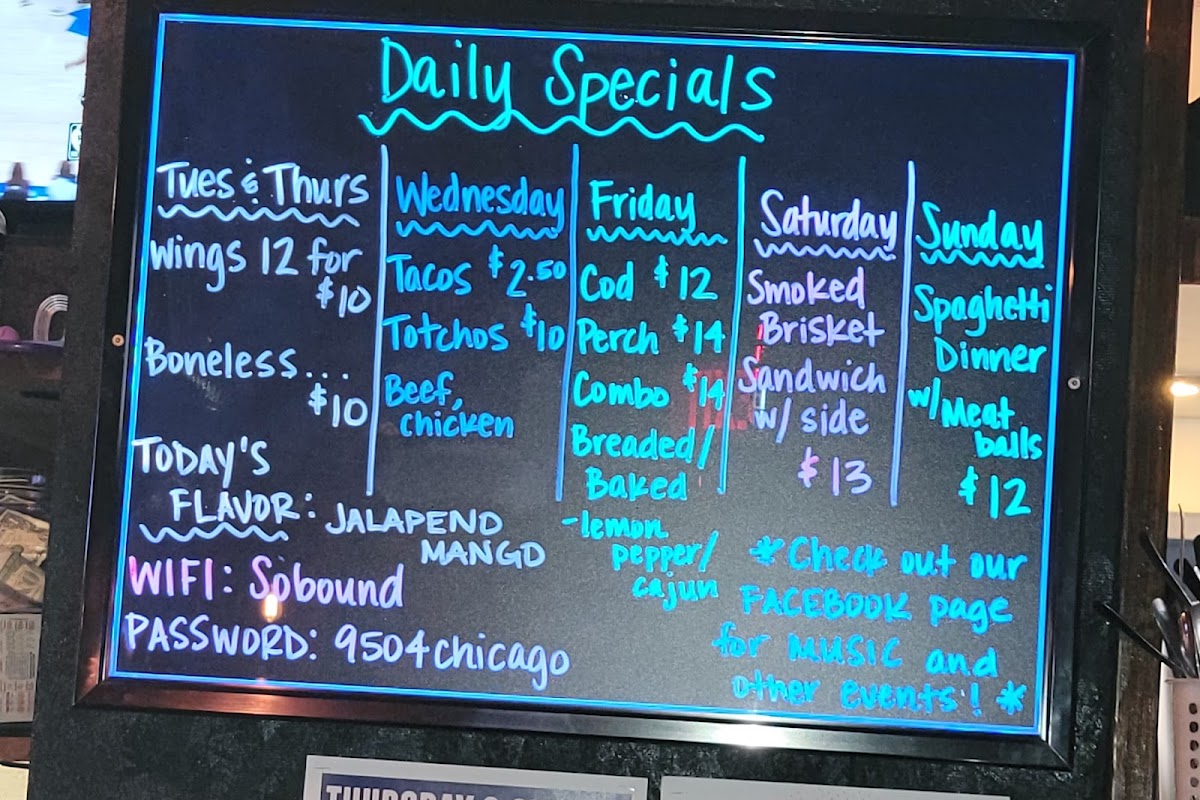 Daily Specials
Tues & Thurs
Wings 12 for
$10
Boneless...
$10
Wednesday
Tacos $2.50
Totchos $10
Beef,
chicken
Friday
Cod $12
Perch $14
Combo $14
Breaded/
Baked
-lemon
pepper/
cajun
Saturday
Smoked
Brisket
Sandwich
w/ side
$13
Sunday
Spaghetti
Dinner
w/ Meat
balls
$12
TODAY'S
FLAVOR: JALAPENO
MANGO
WIFI: Sobound
PASSWORD: 9504chicago
*Check out our
FACEBOOK page
for MUSIC and
other events! *
THURSDAY